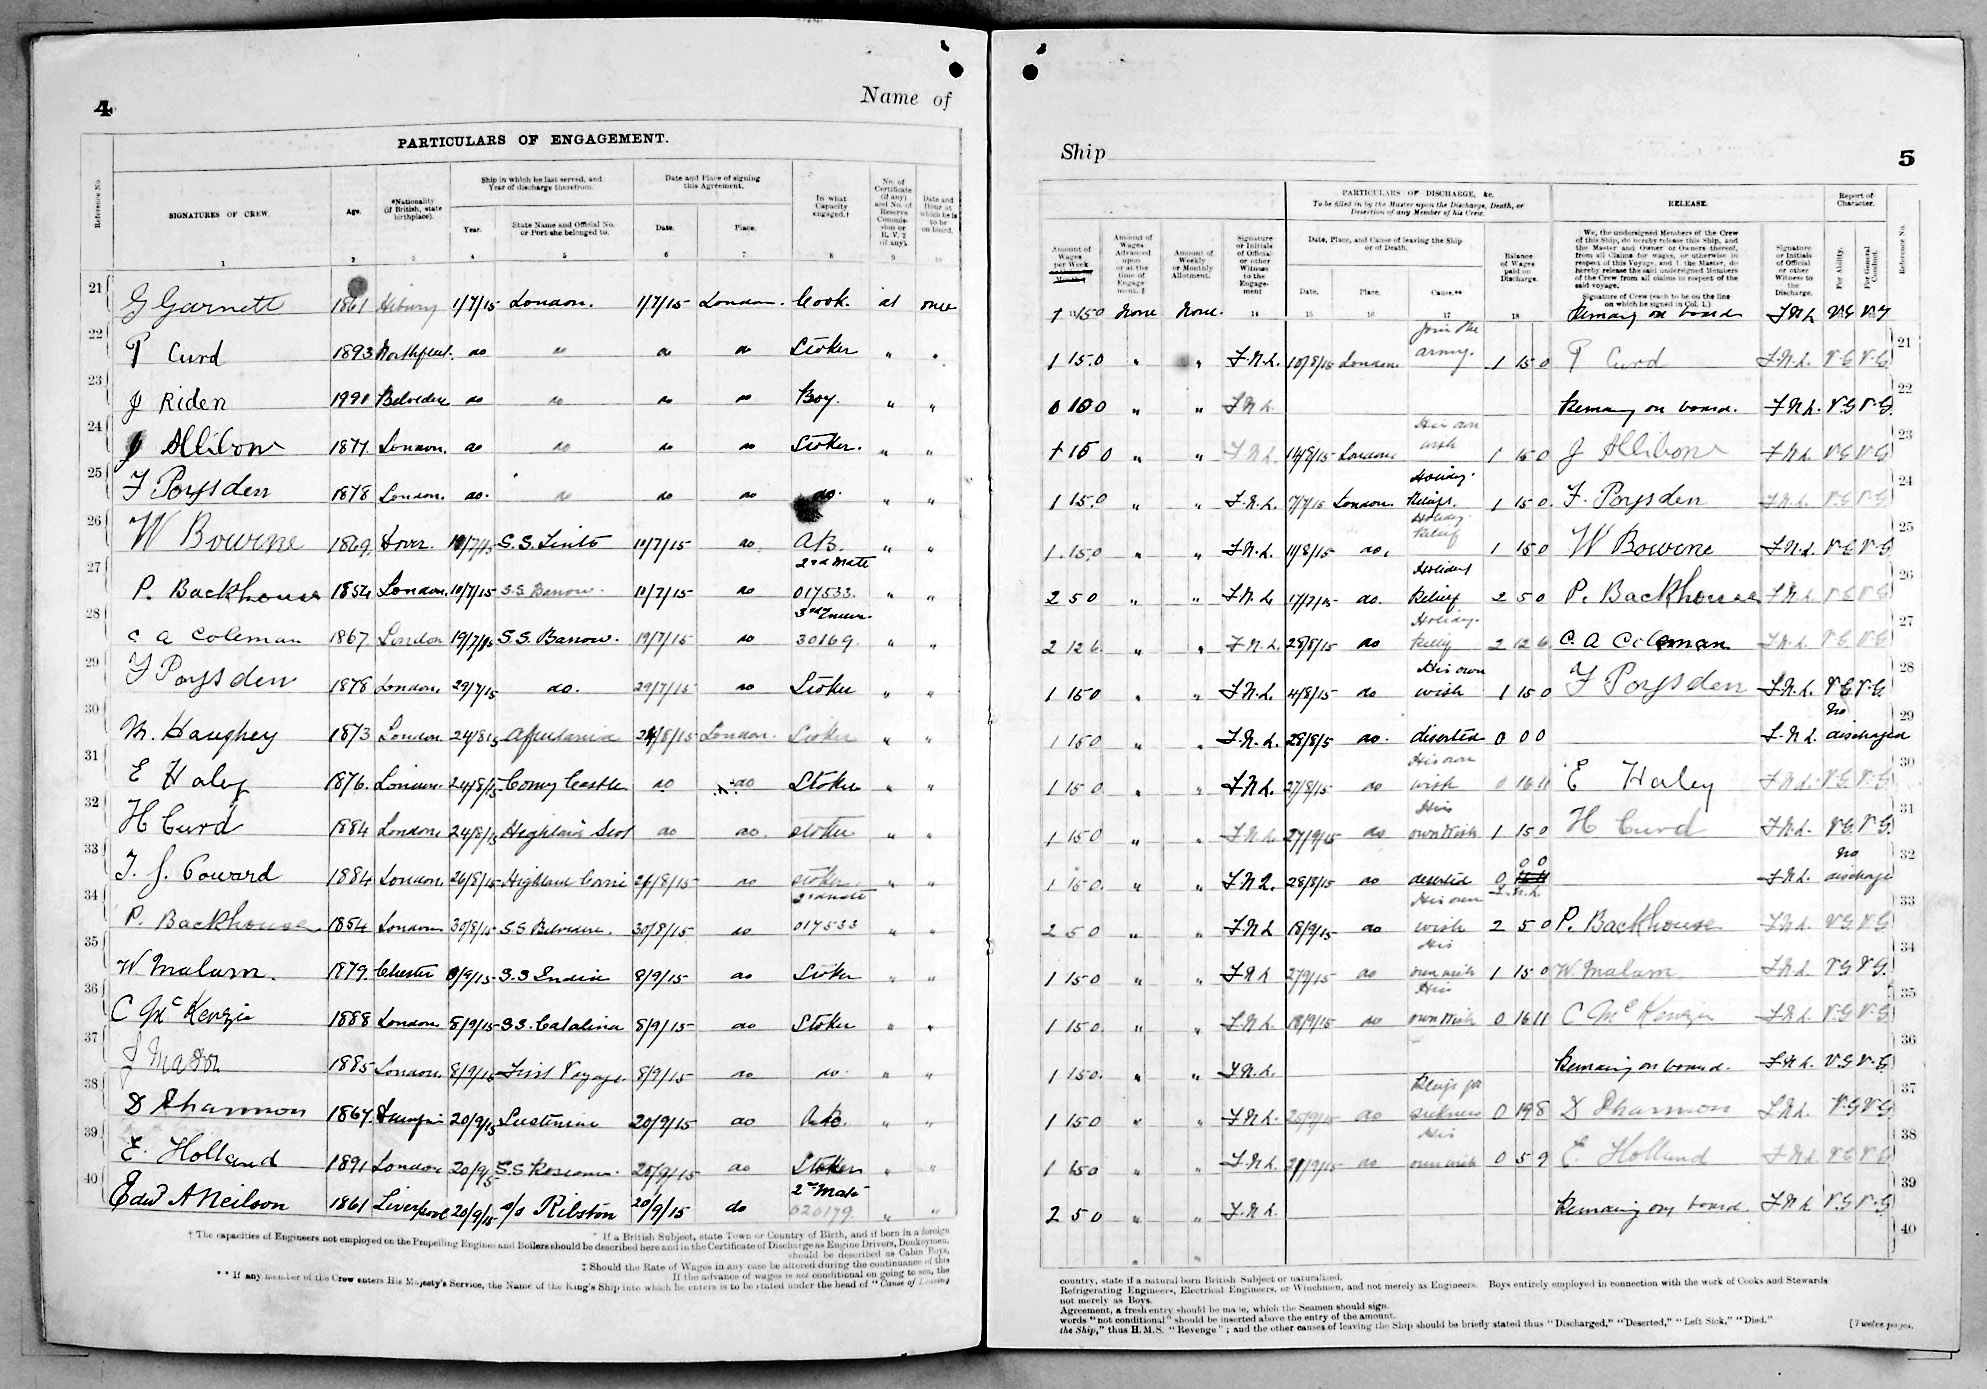 4
Name of
PARTICULARS OF ENGAGEMENT.
Reference No.
SIGNATURES OF CREW.
Age.
*Nationality (if British, state birthplace).
Ship in which he last served, and Year of discharge therefrom.
Year.
State Name and Official No. or Port she belonged to.
Date and Place of signing this Agreement.
Date.
Place.
In what Capacity engaged.†
No. of Certificate (if any) and No. of Reserve Commission or R.V.2 (if any).
Date and Hour at which he is to be on board.
1 2 3 4 5 6 7 8 9 10
21 G Garnett 1861 1/7/15 London. 1/7/15 London. Cook. at once
22 T Curd 1893 Northfleet. do do do do Stoker " "
23 J Riden 1990 Belvedere do do do do Boy. " "
24 J Allibone 1877. London. do do do do Stoker. " "
25 F Poysden 1878 London. do. do do do do. " "
26 W Bowrne 1869. Dover. 10/7/15 S.S. 10/7/15 do. AB. " "
27 P. Backhouse 1854 London. 10/7/15 S.S. Barrow. 10/7/15 do 2nd Mate 017533. " "
28 C A Coleman 1867. London 19/7/15 S.S. Barrow. 19/7/15 do 30169. " "
29 F Poysden 1878 London. 29/7/15 do. 29/7/15 do Stoker " "
30 M. Haughey 1873 London 24/8/15 24/8/15 London. Stoker " "
31 E Haley 1876. London. 24/8/15 do do Stoker " "
32 H Curd 1884 London. 24/8/15 Highland Scot do do. Stoker " "
33 T. J. Coward 1884 London. 26/8/15 Highland Corrie 26/8/15 do Stoker " "
34 P. Backhouse 1854 London 30/8/15 S.S. Belvedere. 30/8/15 do 2nd Mate 017533 " "
35 W Malam. 1879. Chester 8/9/15 S.S India 8/9/15 do Stoker " "
36 C McKenzie 1888 London 8/9/15 S.S. Catalina 8/9/15 do Stoker " "
37 J Mason 1885 London. 8/9/15 First Voyage. 8/9/15 do do. " "
38 D Shannon 1867. 20/9/15 20/9/15 do A.B. " "
39 E. Holland 1891 London 20/9/15 S.S 20/9/15 do Stoker " "
40 Edwd A Neilson 1861 Liverpool 20/9/15 s/s Ribston 20/9/15 do 2nd Mate 020179. " "
* If a British Subject, state Town or Country of Birth, and if born in a foreign
† The capacities of Engineers not employed on the Propelling Engines and Boilers should be described here and in the Certificate of Discharge as Engine Drivers, Donkeymen,
should be described as Cabin Boys,
‡ Should the Rate of Wages in any case be altered during the continuance of this
If the advance of wages is not conditional on going to sea, the
** If any member of the Crew enters His Majesty's Service, the Name of the King's Ship into which he enters is to be stated under the head of "Cause of Leaving
Ship
5
Amount of Wages per Week
Amount of Wages Advanced upon or at the time of Engagement.‡
Amount of Weekly or Monthly Allotment.
Signature or Initials of Official or other Witness to the Engagement
PARTICULARS OF DISCHARGE, &c.
To be filled in by the Master upon the Discharge, Death, or Desertion of any Member of his Crew.
Date, Place, and Cause of leaving the Ship or of Death.
Date.
Place.
Cause.**
Balance of Wages paid on Discharge.
RELEASE.
We, the undersigned Members of the Crew of this Ship, do hereby release this Ship, and the Master and Owner or Owners thereof, from all Claims for wages, or otherwise in respect of this Voyage, and I, the Master, do hereby release the said undersigned Members of the Crew from all claims in respect of the said voyage.
Signature of Crew (each to be on the line on which he signed in Col. 1.)
Signature or Initials of Official or other Witness to the Discharge.
Report of Character.
For Ability.
For General Conduct.
Reference No.
14 15 16 17 18
1 15 0 None None. Remaing on board F.N.L V.G V.G
1 15.0 " " F.N.L. 10/8/15 London Join the army. 1 15 0 T Curd F.N.L. V.G V.G 21
0 10 0 " " F.N.L. Remaing on board. F.N.L. V.G V.G. 22
1 15 0 " " F.N.L. 14/8/15 London His own wish 1 15 0 J Allibone F.N.L. V.G V.G 23
1 15.0 " " F.N.L. 7/7/15 London. Holiday Relief. 1 15 0. F. Poysden F.N.L. V.G V.G 24
1.15.0 " " F.N.L. 11/8/15 do. Holiday Relief 1 15 0 W Bowrne F.N.L. V.G V.G 25
2 5 0 " " F.N.L. 17/7/15 do. Holiday Relief 2 5 0 P. Backhouse F.N.L. V.G V.G 26
2 12 6. " " F.N.L. 28/8/15 do Holiday. Relief 2 12 6. C. A Coleman F.N.L. V.G V.G 27
1 15 0 " " F.N.L. 4/8/15 do His own wish 1 15 0 F Poysden F.N.L. V.G V.G. 28
1 15 0 " " F.N.L. 28/8/15 do. deserted 0 0 0 F.N.L. No discharged 29
1 15 0. " " F.N.L. 27/8/15 do His own wish 0 16 11 E Haley F.N.L. V.G V.G 30
1 15 0 " " F.N.L. 27/9/15 do His own wish 1 15 0 H Curd F.N.L. V.G. V.G. 31
1 15 0. " " F.N.L. 28/8/15 do deserted 0 0 0 F.N.L. F.N.L. No discharge 32
2 5 0 " " F.N.L 18/9/15 do His own wish 2 5 0 P. Backhouse F.N.L V.G V.G 33
1 15 0 " " F.N.L 27/9/15 do His own wish 1 15 0 W Malam F.N.L. V.G V.G. 34
1 15 0. " " F.N.L 18/9/15 do His own wish 0 16 11 C McKenzie F.N.L. V.G V.G 35
1 15 0. " " F.N.L. Remaing on board. F.N.L. V.G V.G 36
1 15 0 " " F.N.L. 25/9/15 do sickness 0 19 8 D Shannon F.N.L. V.G V.G 37
1 15 0 " " F.N.L. 21/9/15 do His own wish 0 5 9 E. Holland F.N.L V.G V.G 38
2 5 0 " " F.N.L. Remaing on board. F.N.L V.G V.G 39
" 40
country, state if a natural born British Subject or naturalised.
Refrigerating Engineers, Electrical Engineers, or Winchmen, and not merely as Engineers. Boys entirely employed in connection with the work of Cooks and Stewards
not merely as Boys.
Agreement, a fresh entry should be made, which the Seamen should sign.
words "not conditional" should be inserted above the entry of the amount.
the Ship," thus H.M.S. "Revenge"; and the other causes of leaving the Ship should be briefly stated thus "Discharged," "Deserted," "Left Sick," "Died."
[Twelve pages.